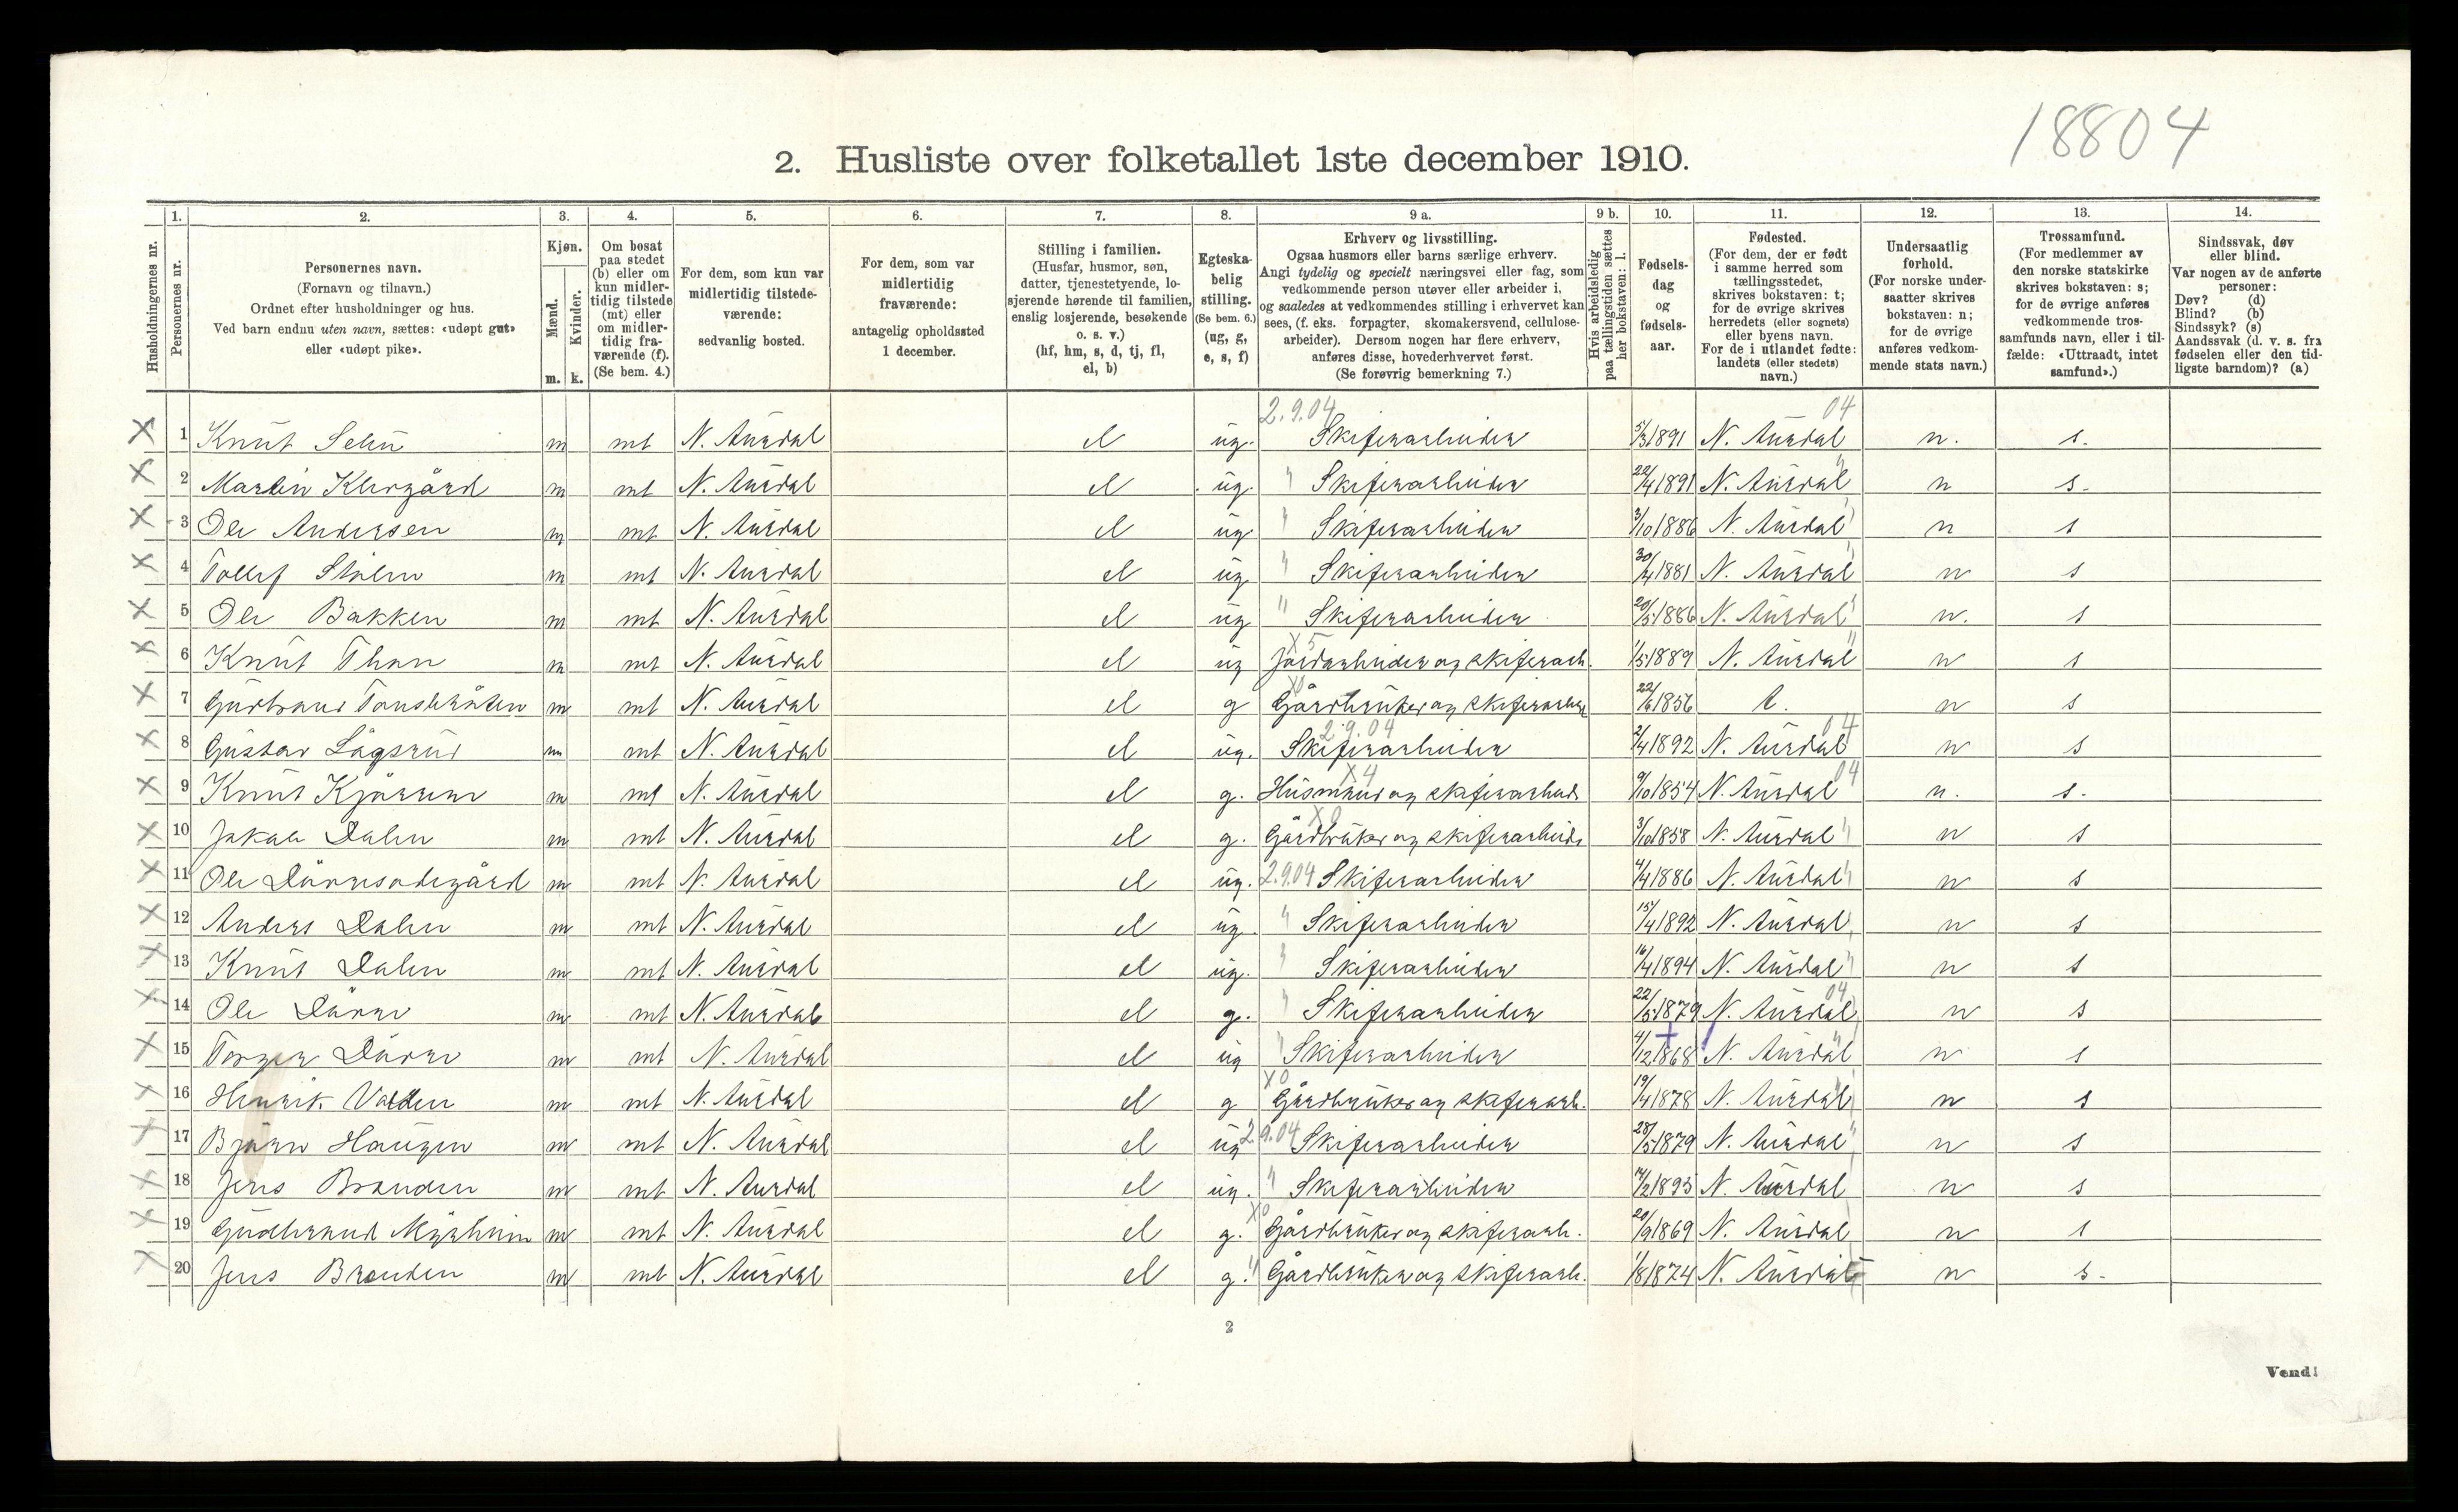 18804
2. Husliste over folketallet 1ste december 1910.
Husholdningernes nr.
1. Personernes nr.
2. Personernes navn. (Fornavn og tilnavn.) Ordnet efter husholdninger og hus. Ved barn endnu uten navn, sættes: «udøpt gut» eller «udøpt pike».
3. Kjøn. Mænd. m. Kvinder. k.
4. Om bosat paa stedet (b) eller om kun midler-tidig tilstede (mt) eller om midler-tidig fra-værende (f). (Se bem. 4.)
5. For dem, som kun var midlertidig tilstede-værende: sedvanlig bosted.
6. For dem, som var midlertidig fraværende: antagelig opholdssted 1 december.
7. Stilling i familien. (Husfar, husmor, søn, datter, tjenestetyende, lo-sjerende hørende til familien, enslig losjerende, besøkende o. s. v.) (hf, hm, s, d, tj, fl, el, b)
8. Egteska-belig stilling. (Se bem. 6.) (ug, g, e, s, f)
9 a. Erhverv og livsstilling. Ogsaa husmors eller barns særlige erhverv. Angi tydelig og specielt næringsvei eller fag, som vedkommende person utøver eller arbeider i, og saaledes at vedkommendes stilling i erhvervet kan sees, (f. eks. forpagter, skomakersvend, cellulose-arbeider). Dersom nogen har flere erhverv, anføres disse, hovederhvervet først. (Se forøvrig bemerkning 7.)
9 b. Hvis arbeidsledig paa tællingstiden sættes her bokstaven: l.
10. Fødsels-dag og fødsels-aar.
11. Fødested. (For dem, der er født i samme herred som tællingsstedet, skrives bokstaven: t; for de øvrige skrives herredets (eller sognets) eller byens navn. For de i utlandet fødte: landets (eller stedets) navn.)
12. Undersaatlig forhold. (For norske under-saatter skrives bokstaven: n; for de øvrige anføres vedkom-mende stats navn.)
13. Trossamfund. (For medlemmer av den norske statskirke skrives bokstaven: s; for de øvrige anføres vedkommende tros-samfunds navn, eller i til-fælde: «Uttraadt, intet samfund».)
14. Sindssvak, døv eller blind. Var nogen av de anførte personer: Døv? (d) Blind? (b) Sindssyk? (s) Aandssvak (d. v. s. fra fødselen eller den tid-ligste barndom)? (a)
2.9.04 04
X 1 Knut m mt N. Aurdal el ug. Skiferarbeider 5/3 1891 N. Aurdal n. s.
X 2 Martin m mt N. Aurdal el ug. " Skiferarbeider 22/4 1891 N. Aurdal " n s.
X 3 Ole Andersen m mt N. Aurdal el ug " Skiferarbeider 3/10 1886 N. Aurdal " n s
X 4 Tollef Stølen m mt N. Aurdal el ug " Skiferarbeider 30/4 1881 N. Aurdal " n s
X 5 Ole Bakken m mt N. Aurdal el ug " Skiferarbeider 20/5 1886 N. Aurdal " n. s
X 5
X 6 Knut m mt N. Aurdal el ug Jordarbeider og skiferarb. 1/5 1889 N. Aurdal " n s
X0
X 7 Gudbrand m mt N. Aurdal el g Gårdbruker og skiferarbeid 22/6 1856 t. n s
2.9.04 04
X 8 Gustav Lågerud m mt N. Aurdal el ug. Skiferarbeider 2/4 1892 N. Aurdal n s
X4 04
X 9 Knut m mt N. Aurdal el g. Husmand og skiferarbeid. 9/10 1854 N. Aurdal n. s.
X0
X 10 Jakob Dalen m mt N. Aurdal el g. Gårdbruker og skiferarbeid. 3/10 1858 N. Aurdal " n s
X 11 Ole m mt N. Aurdal el ug. 2.9.04 Skiferarbeider 4/4 1886 N. Aurdal " n s
X 12 Anders Dalen m mt N. Aurdal el ug " Skiferarbeider 15/4 1892 N. Aurdal " n s
X 13 Knut Dalen m mt N. Aurdal el ug. " Skiferarbeider 16/4 1894 N. Aurdal " n s
04
X 14 Ole m mt N. Aurdal el g. " Skiferarbeider 22/5 1879 N. Aurdal n s
X 15 m mt N. Aurdal el ug " Skiferarbeider 4/12 1868 N. Aurdal " n s
X0
X 16 Henrik m mt N. Aurdal el g Gårdbruker og skiferarb. 19/4 1878 N. Aurdal " n s
X 17 Bjørn Haugen m mt N. Aurdal el ug 2.9.04 Skiferarbeider 28/5 1879 N. Aurdal " n s
X 18 Jens Branden m mt N. Aurdal el ug. " Skiferarbeider 14/2 1895 N. Aurdal n s
X0
X 19 Gudbrand m mt N. Aurdal el g. Gårdbruker og skiferarb. 20/9 1869 N. Aurdal n s
X 20 Jens Branden m mt N. Aurdal el g. " Gårdbruker og skiferarb. 1/8 1874 N. Aurdal n s.
2
Vend!